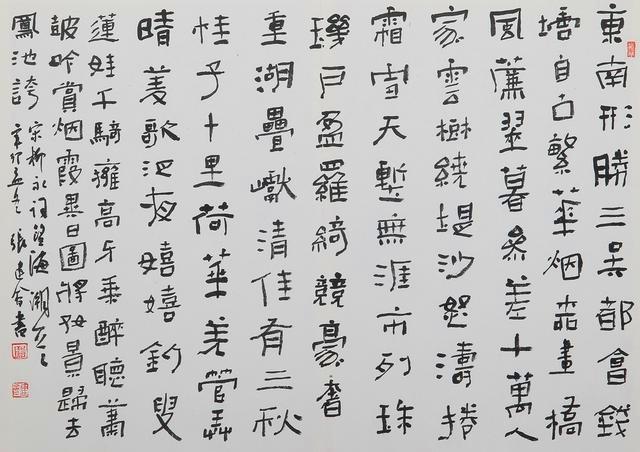 東南形勝三吳都會錢
塘自古繁華烟柳畫橋
風簾翠幕參差十萬人
家雲樹繞堤沙怒濤捲
霜雪天塹無涯市列珠
璣戶盈羅綺競豪奢
重湖疊巘清佳有三秋
桂子十里荷華羌管弄
晴菱歌泛夜嬉嬉釣叟
蓮娃千騎擁高牙乘醉聽蕭
鼓吟賞烟霞異日圖將好景歸去
鳳池誇
宋柳永詞望海潮
辛卯孟冬張建會書